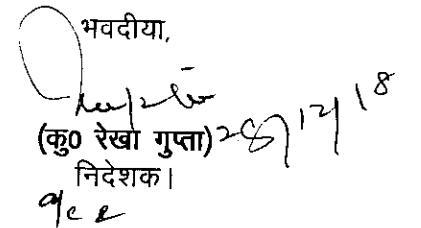 भवदीया,
(कु0 रेखा गुप्ता) 28/12/18
निदेशक।